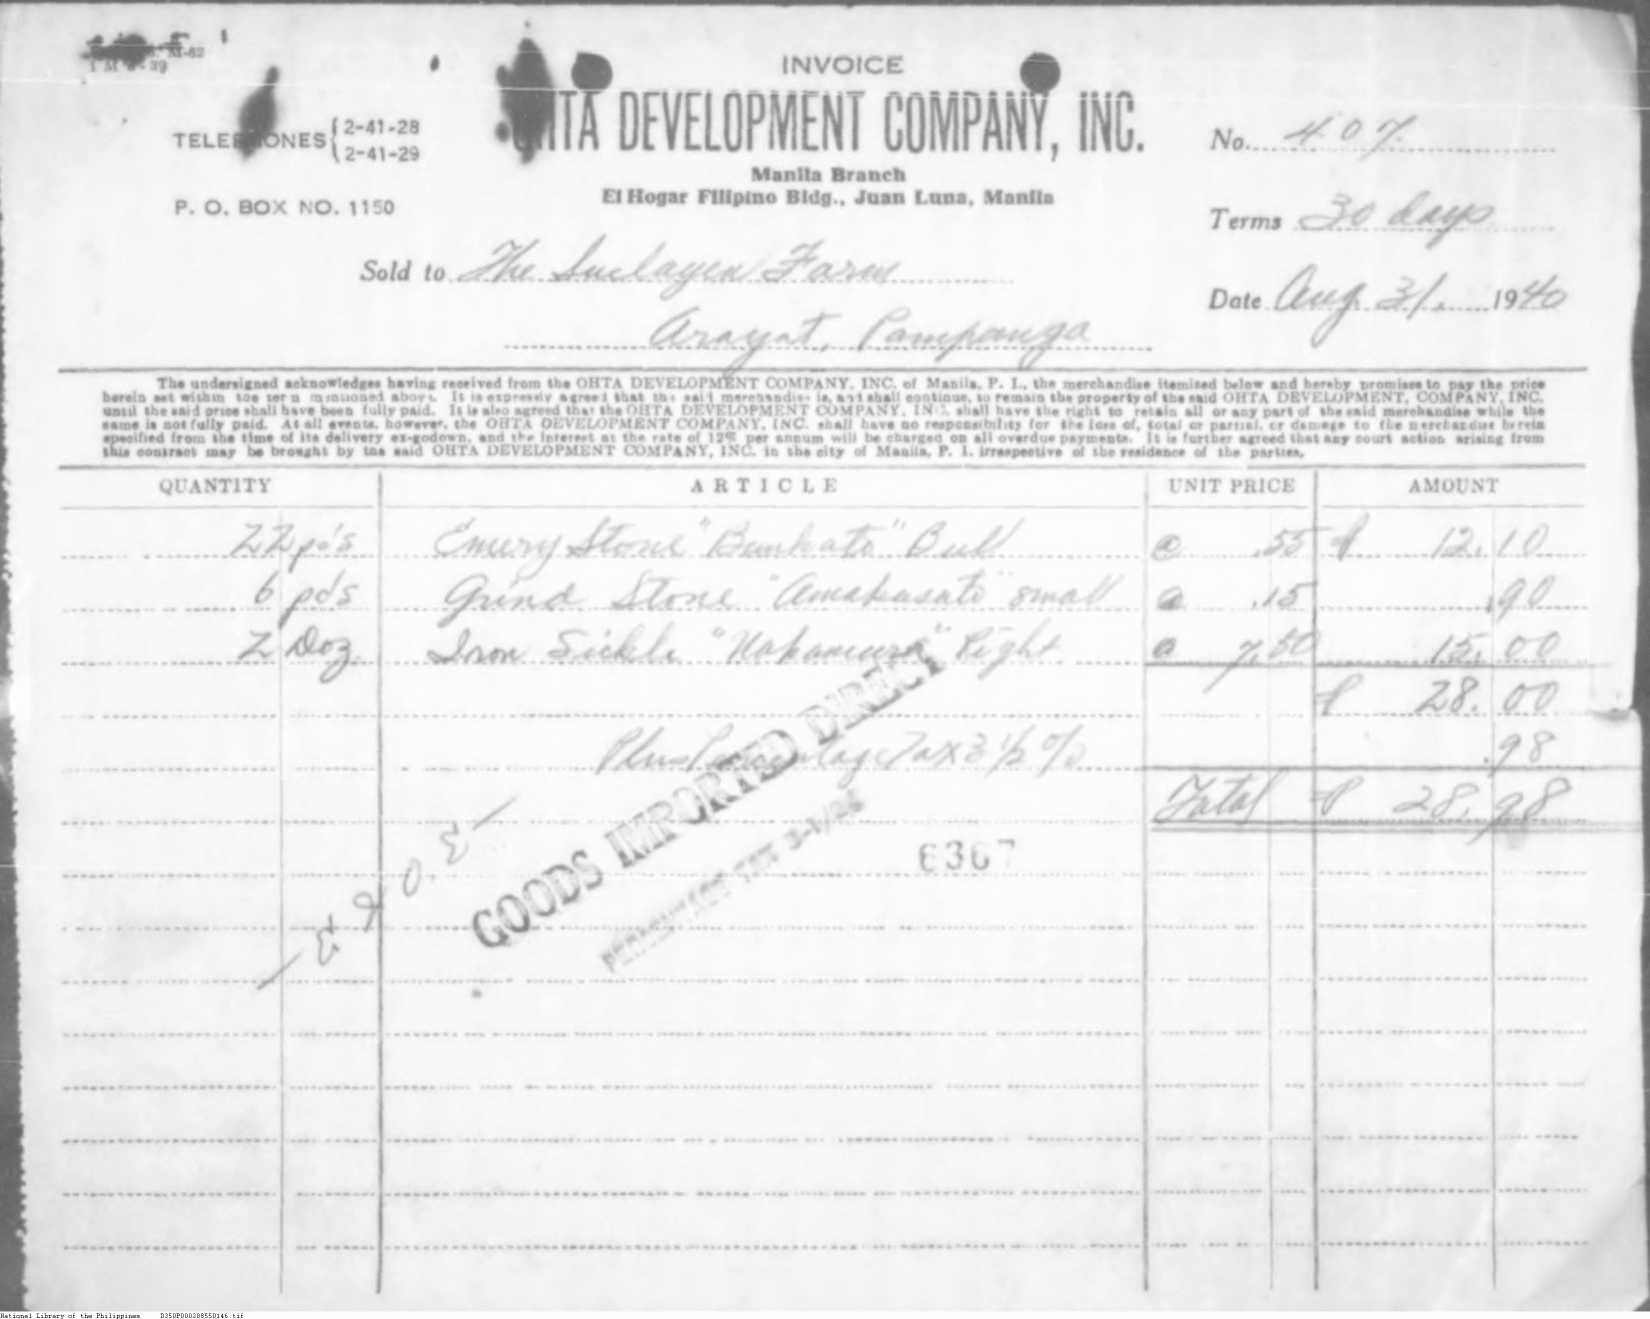 M-62
1 M 39
INVOICE
OHTA DEVELOPMENT COMPANY, INC.
Manila Branch
El Hogar Filipino Bldg., Juan Luna, Manila
TELEPHONES { 2-41-28
2-41-29
P. O. BOX NO. 1150
No. 407
Terms 30 days
Date Aug 31. 1940
Sold to The Suclayen Farm
Arayat, Pampanga
The undersigned acknowledges having received from the OHTA DEVELOPMENT COMPANY, INC. of Manila, P. I., the merchandise itemized below and hereby promises to pay the price
herein set within the term mentioned above. It is expressly agreed that the said merchandise is, and shall continue, to remain the property of the said OHTA DEVELOPMENT, COMPANY, INC.
until the said price shall have been fully paid. It is also agreed that the OHTA DEVELOPMENT COMPANY, INC. shall have the right to retain all or any part of the said merchandise while the
same is not fully paid. At all events, however, the OHTA DEVELOPMENT COMPANY, INC. shall have no responsibility for the loss of, total or partial, or damage to the merchandise herein
specified from the time of its delivery ex-godown, and the interest at the rate of 12% per annum will be charged on all overdue payments. It is further agreed that any court action arising from
this contract may be brought by the said OHTA DEVELOPMENT COMPANY, INC. in the city of Manila, P. I. irrespective of the residence of the parties.
QUANTITY ARTICLE UNIT PRICE AMOUNT
22 pc's Emery Stone "Bunkato" Bull @ .55 ₱ 12.10
6 pc's Grind Stone "Amakusato" small @ .15 .90
2 Doz Iron Sickle "Nakamura" Right @ 7.50 15.00
₱ 28.00
Plus Percentage Tax 3 1/2 % .98
Total ₱ 28.98
- E & O. E -
GOODS IMPORTED DIRECT
PERCENTAGE TAX 3-1/2%
6367
National Library of the Philippines D350P000208550146.tif